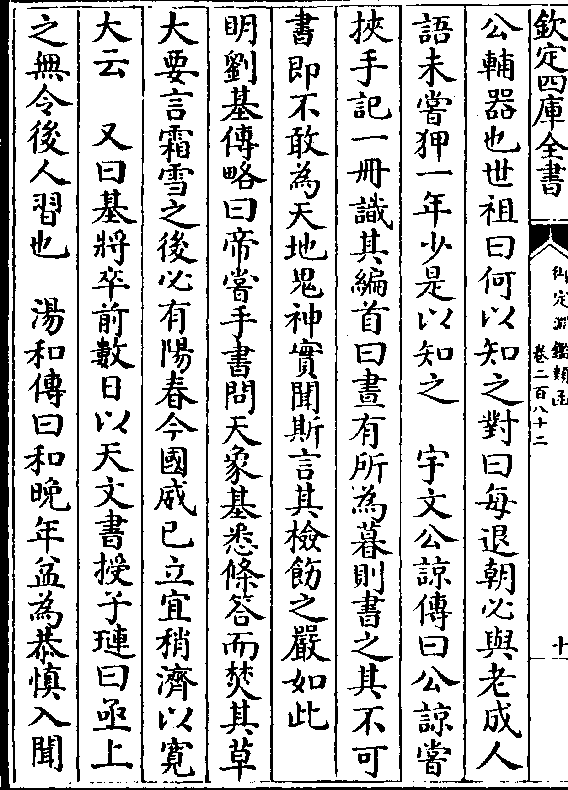 欽定四庫全書
御定淵鑑類函
卷二百八十二
十
公輔器也世祖曰何以知之對曰每退朝必與老成人
語未嘗狎一年少是以知之　宇文公諒傳曰公諒嘗
挾手記一冊識其編首曰晝有所為暮則書之其不可
書即不敢為天地鬼神實聞斯言其檢飭之嚴如此
明劉基傳略曰帝嘗手書問天象基悉條答而焚其草
大要言霜雪之後必有陽春今國威已立宜稍濟以寛
大云　又曰基將卒前數日以天文書授子璉曰亟上
之無令後人習也　湯和傳曰和晚年益為恭慎入聞